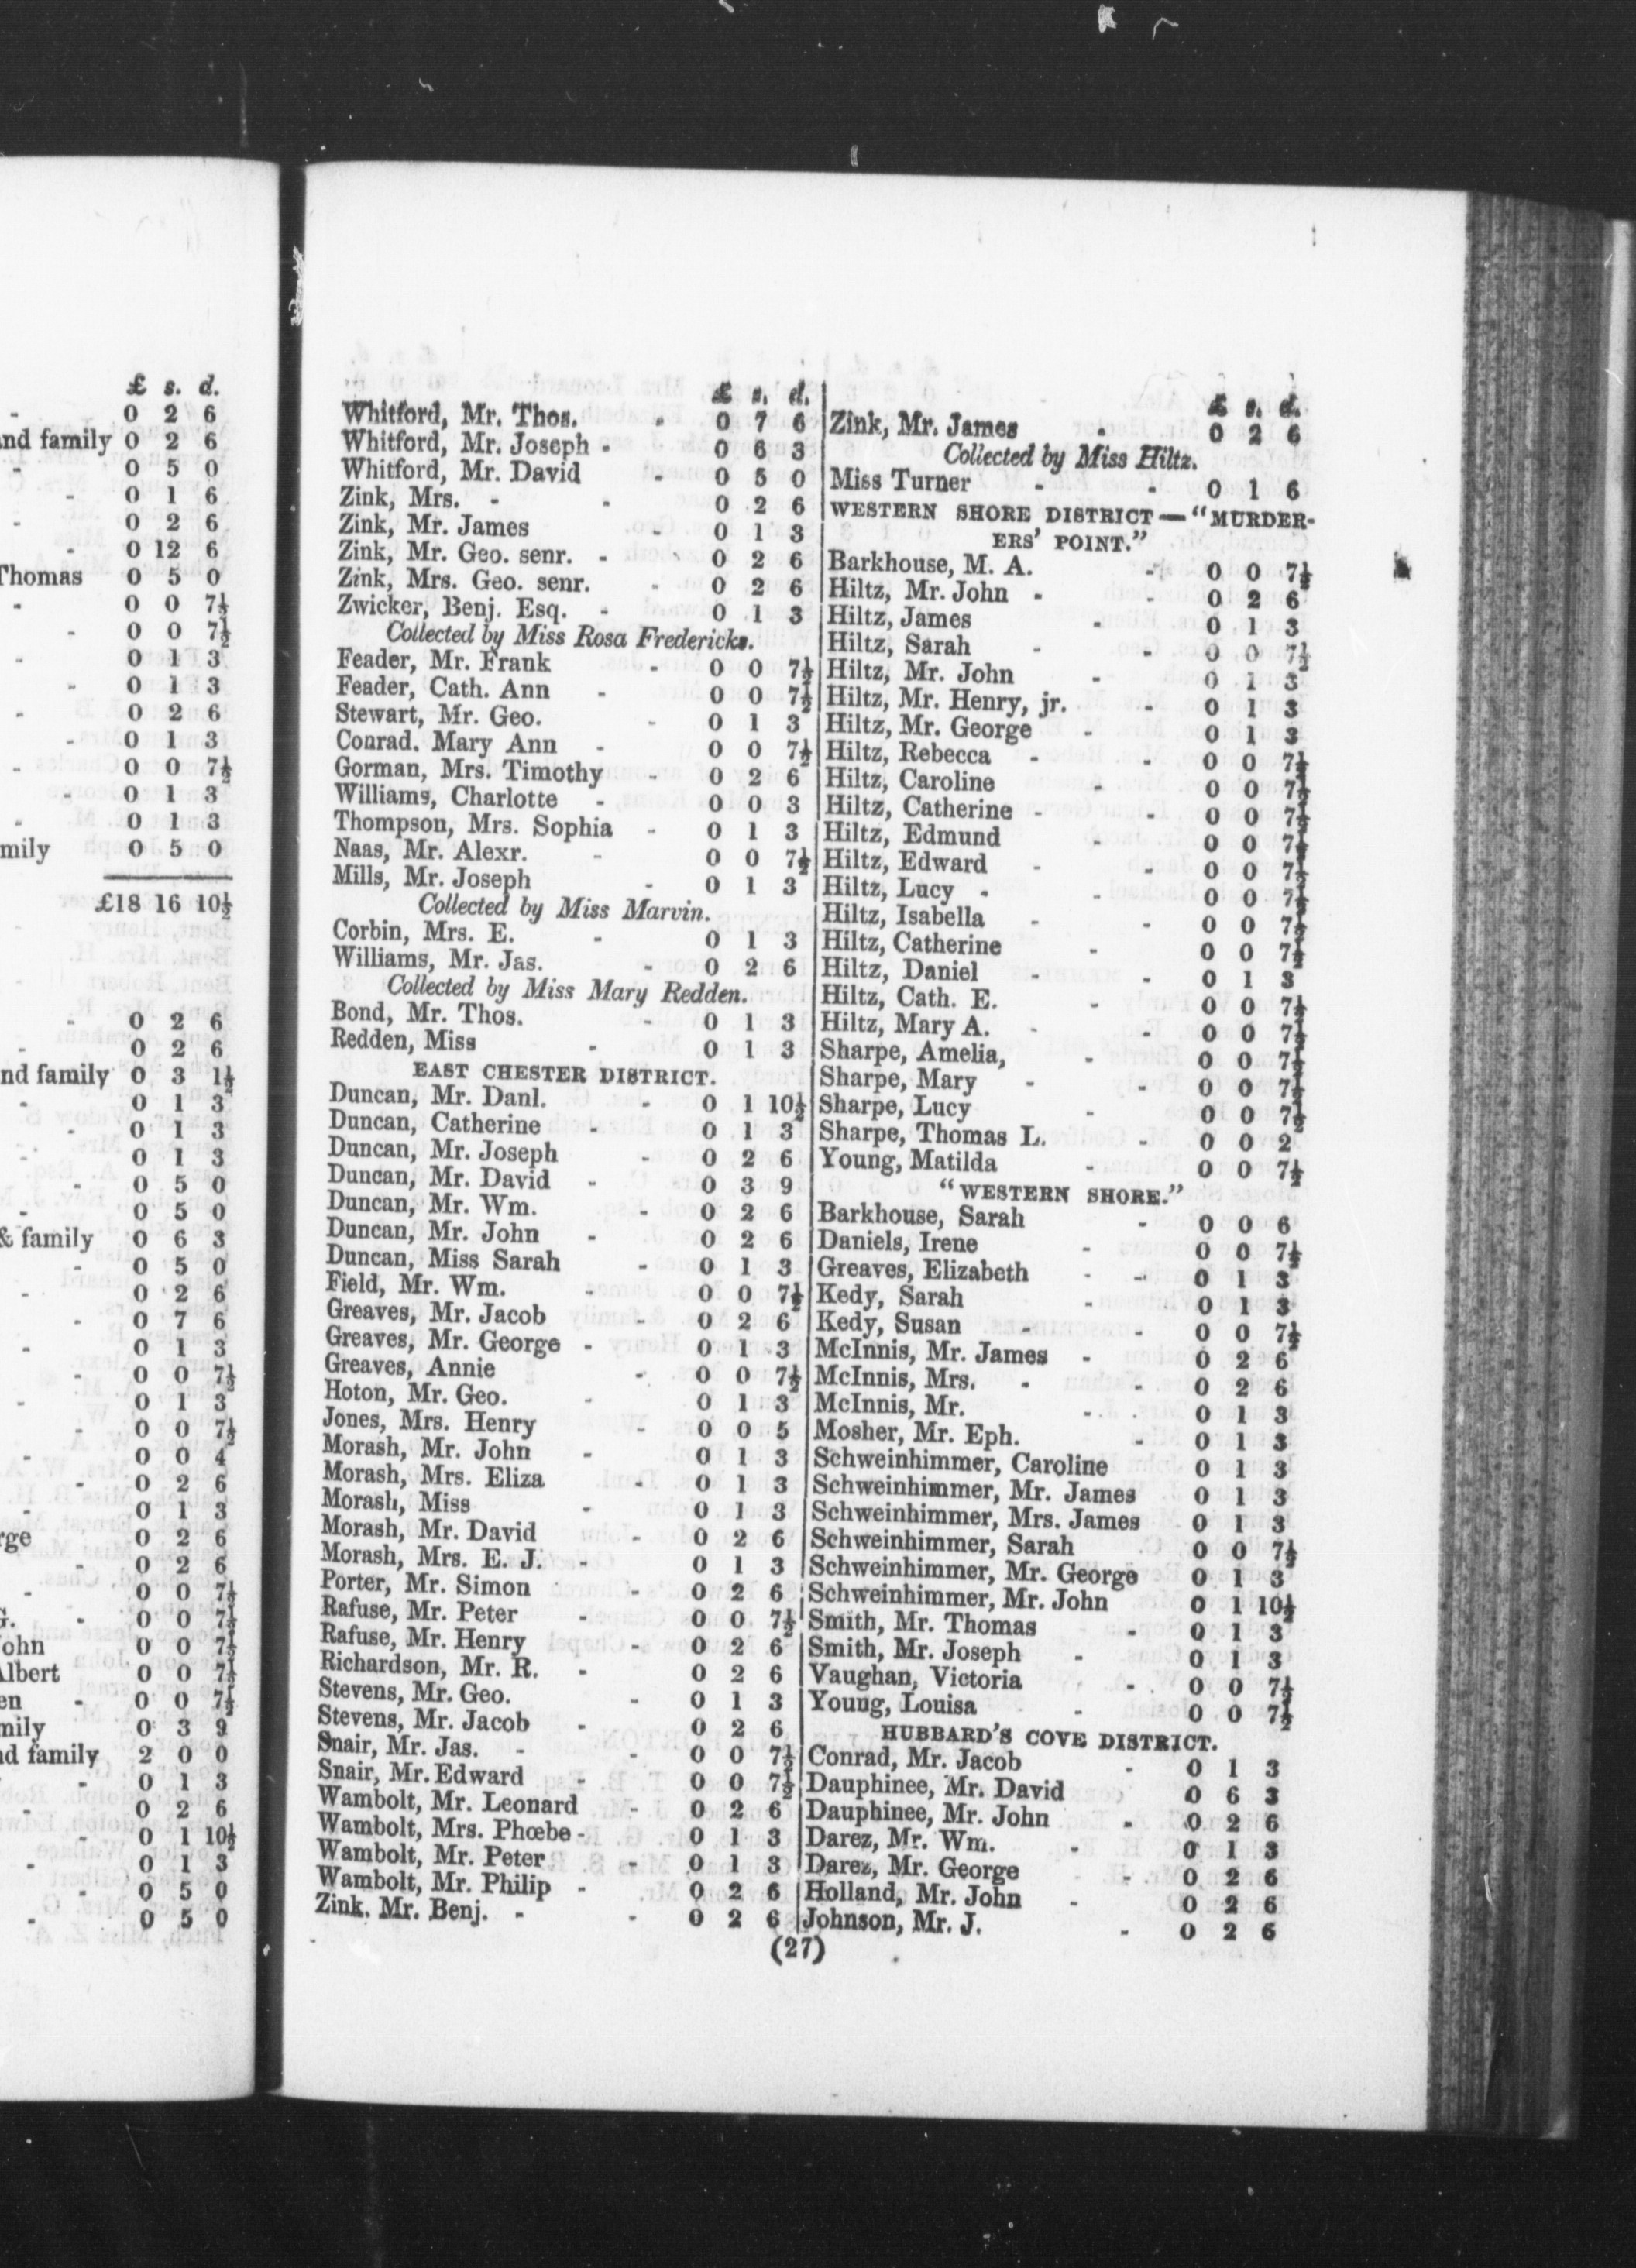 £ s. d.
- 0 2 6
nd family 0 2 6
- 0 5 0
- 0 1 6
- 0 2 6
- 0 12 6
Thomas 0 5 0
- 0 0 7½
- 0 0 7½
- 0 1 3
- 0 1 3
- 0 2 6
- 0 1 3
- 0 0 7½
- 0 1 3
- 0 1 3
mily 0 5 0
£18 16 10½
- 0 2 6
- 0 2 6
nd family 0 3 1½
- 0 1 3
- 0 1 3
- 0 1 3
- 0 5 0
- 0 5 0
& family 0 6 3
- 0 5 0
- 0 2 6
- 0 7 6
- 0 1 3
- 0 0 7½
- 0 1 3
- 0 0 7½
- 0 0 4
- 0 2 6
- 0 1 3
rge 0 2 6
- 0 2 6
- 0 0 7½
G. - 0 0 7½
ohn 0 0 7½
Albert 0 0 7½
en - 0 0 7½
mily 0 3 9
d family 2 0 0
- 0 1 3
- 0 2 6
- 0 1 10½
- 0 1 3
- 0 5 0
- 0 5 0
£ s. d.
Whitford, Mr. Thos. - 0 7 6
Whitford, Mr. Joseph - 0 6 3
Whitford, Mr. David - 0 5 0
Zink, Mrs. - - 0 2 6
Zink, Mr. James - 0 1 3
Zink, Mr. Geo. senr. - 0 2 6
Zink, Mrs. Geo. senr. - 0 2 6
Zwicker, Benj. Esq. - 0 1 3
Collected by Miss Rosa Fredericks.
Feader, Mr. Frank - 0 0 7½
Feader, Cath. Ann - 0 0 7½
Stewart, Mr. Geo. - 0 1 3
Conrad. Mary Ann - 0 0 7½
Gorman, Mrs. Timothy - 0 2 6
Williams, Charlotte - 0 0 3
Thompson, Mrs. Sophia - 0 1 3
Naas, Mr. Alexr. - 0 0 7½
Mills, Mr. Joseph - 0 1 3
Collected by Miss Marvin.
Corbin, Mrs. E. - 0 1 3
Williams, Mr. Jas. - 0 2 6
Collected by Miss Mary Redden.
Bond, Mr. Thos. - 0 1 3
Redden, Miss - 0 1 3
EAST CHESTER DISTRICT.
Duncan, Mr. Danl. - 0 1 10½
Duncan, Catherine - 0 1 3
Duncan, Mr. Joseph - 0 2 6
Duncan, Mr. David - 0 3 9
Duncan, Mr. Wm. - 0 2 6
Duncan, Mr. John - 0 2 6
Duncan, Miss Sarah - 0 1 3
Field, Mr. Wm. - 0 0 7½
Greaves, Mr. Jacob - 0 2 6
Greaves, Mr. George - 0 1 3
Greaves, Annie - 0 0 7½
Hoton, Mr. Geo. - 0 1 3
Jones, Mrs. Henry - 0 0 5
Morash, Mr. John - 0 1 3
Morash, Mrs. Eliza - 0 1 3
Morash, Miss - 0 1 3
Morash, Mr. David - 0 2 6
Morash, Mrs. E. J. - 0 1 3
Porter, Mr. Simon - 0 2 6
Rafuse, Mr. Peter - 0 0 7½
Rafuse, Mr. Henry - 0 2 6
Richardson, Mr. R. - 0 2 6
Stevens, Mr. Geo. - 0 1 3
Stevens, Mr. Jacob - 0 2 6
Snair, Mr. Jas. - - 0 0 7½
Snair, Mr. Edward - 0 0 7½
Wambolt, Mr. Leonard - 0 2 6
Wambolt, Mrs. Phœbe - 0 1 3
Wambolt, Mr. Peter - 0 1 3
Wambolt, Mr. Philip - 0 2 6
Zink. Mr. Benj. - - 0 2 6
£ s. d.
Zink, Mr. James - 0 2 6
Collected by Miss Hiltz.
Miss Turner - - 0 1 6
WESTERN SHORE DISTRICT — "MURDER-
ERS' POINT."
Barkhouse, M. A. - 0 0 7½
Hiltz, Mr. John - - 0 2 6
Hiltz, James - 0 1 3
Hiltz, Sarah - - 0 0 7½
Hiltz, Mr. John - 0 1 3
Hiltz, Mr. Henry, jr. - 0 1 3
Hiltz, Mr. George - 0 1 3
Hiltz, Rebecca - - 0 0 7½
Hiltz, Caroline - 0 0 7½
Hiltz, Catherine - - 0 0 7½
Hiltz, Edmund - 0 0 7½
Hiltz, Edward - - 0 0 7½
Hiltz, Lucy - - 0 0 7½
Hiltz, Isabella - - 0 0 7½
Hiltz, Catherine - 0 0 7½
Hiltz, Daniel - - 0 1 3
Hiltz, Cath. E. - 0 0 7½
Hiltz, Mary A. - - 0 0 7½
Sharpe, Amelia, - 0 0 7½
Sharpe, Mary - - 0 0 7½
Sharpe, Lucy - 0 0 7½
Sharpe, Thomas L. - 0 0 2
Young, Matilda - 0 0 7½
"WESTERN SHORE."
Barkhouse, Sarah - 0 0 6
Daniels, Irene - 0 0 7½
Greaves, Elizabeth - - 0 1 3
Kedy, Sarah - 0 1 3
Kedy, Susan - - 0 0 7½
McInnis, Mr. James - 0 2 6
McInnis, Mrs. - - 0 2 6
McInnis, Mr. - 0 1 3
Mosher, Mr. Eph. - 0 1 3
Schweinhimmer, Caroline 0 1 3
Schweinhimmer, Mr. James 0 1 3
Schweinhimmer, Mrs. James 0 1 3
Schweinhimmer, Sarah 0 0 7½
Schweinhimmer, Mr. George 0 1 3
Schweinhimmer, Mr. John 0 1 10½
Smith, Mr. Thomas - 0 1 3
Smith, Mr. Joseph - 0 1 3
Vaughan, Victoria - 0 0 7½
Young, Louisa - - 0 0 7½
HUBBARD'S COVE DISTRICT.
Conrad, Mr. Jacob - 0 1 3
Dauphinee, Mr. David 0 6 3
Dauphinee, Mr. John - 0 2 6
Darez, Mr. Wm. - 0 1 3
Darez, Mr. George - 0 2 6
Holland, Mr. John - 0 2 6
Johnson, Mr. J. - 0 2 6
(27)